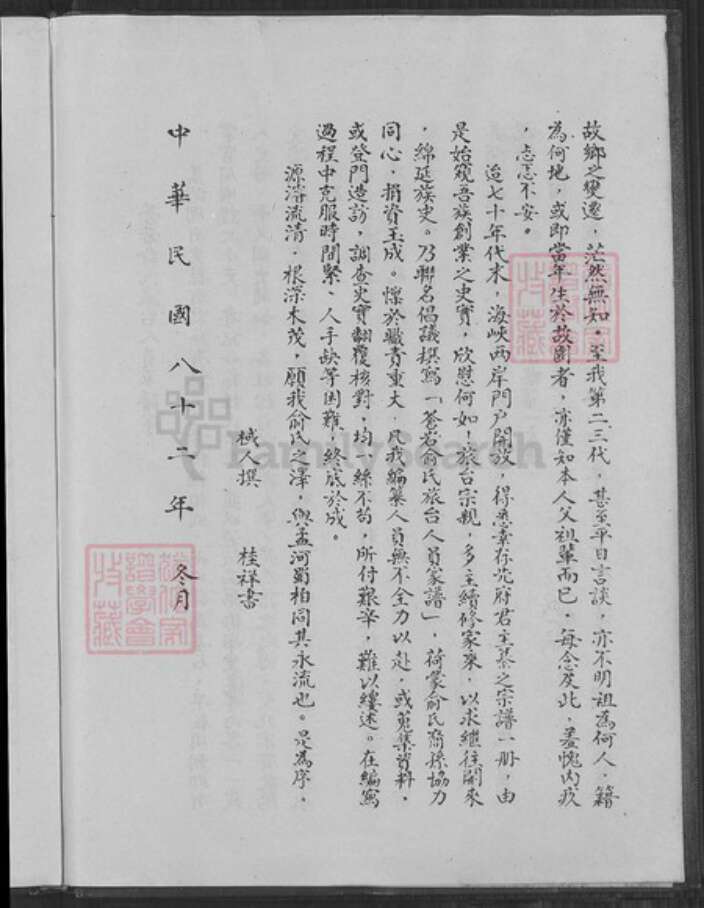 故鄉之變遷，茫然無知。至我第二三代，甚至平日言談，亦不明祖為何人，籍
為何地，或即當年生於故園者，亦僅知本人父祖輩而已。每念及此，羞愧內疚
，忐忑不安。
迨七十年代末，海峽兩岸門戶開放，得悉幸存光府君主纂之宗譜一册，由
是始窺吾族創業之史實，欣慰何如！旅台宗親，多主續修家乘，以求繼往開來
，綿延族史。乃聯名倡議撰寫「蒼岩俞氏旅台人員家譜」，荷蒙俞氏裔孫協力
同心，捐資玉成。懍於職責重大，凡我編纂人員無不全力以赴，或蒐集資料，
或登門造訪，調查史實翻覆核對，均一絲不苟，所付艱辛，難以縷述。在編寫
過程中克服時間緊、人手缺等困難，終底於成。
源濬流清，根深木茂，願我俞氏之澤，與孟河蜀柏同其永流也。是為序。
棫人撰 桂祥書
中華民國八十二年 冬月
FamilySearch
譜學會
收藏